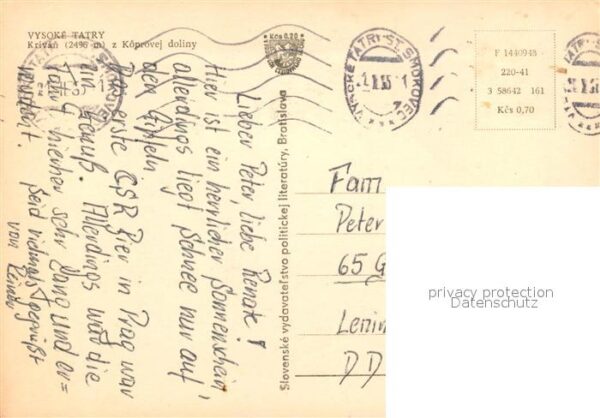 VYSOKÉ TATRY
Kriváň (2496 m) z Kôprovej doliny
Kčs 0,20
VYSOKÉ TATRY ST. SMOKOVEC
F 1440948
220-41
3 58642 161
Kčs 0,70
Slovenské vydavateľstvo politickej literatúry, Bratislava
Lieber Peter, liebe Renate!
Hier ist ein herrlicher Sonnenschein,
allerdings liegt Schnee nur auf
den Gipfeln.
Das erste ČSR Bier in Prag war
ein Genuß. Allerdings war die
Fahrt hierher sehr lang und er=
müdend. Seid vielmals gegrüßt
von
Fam
Peter
65 G
Lenin
DD
privacy protection
Datenschutz